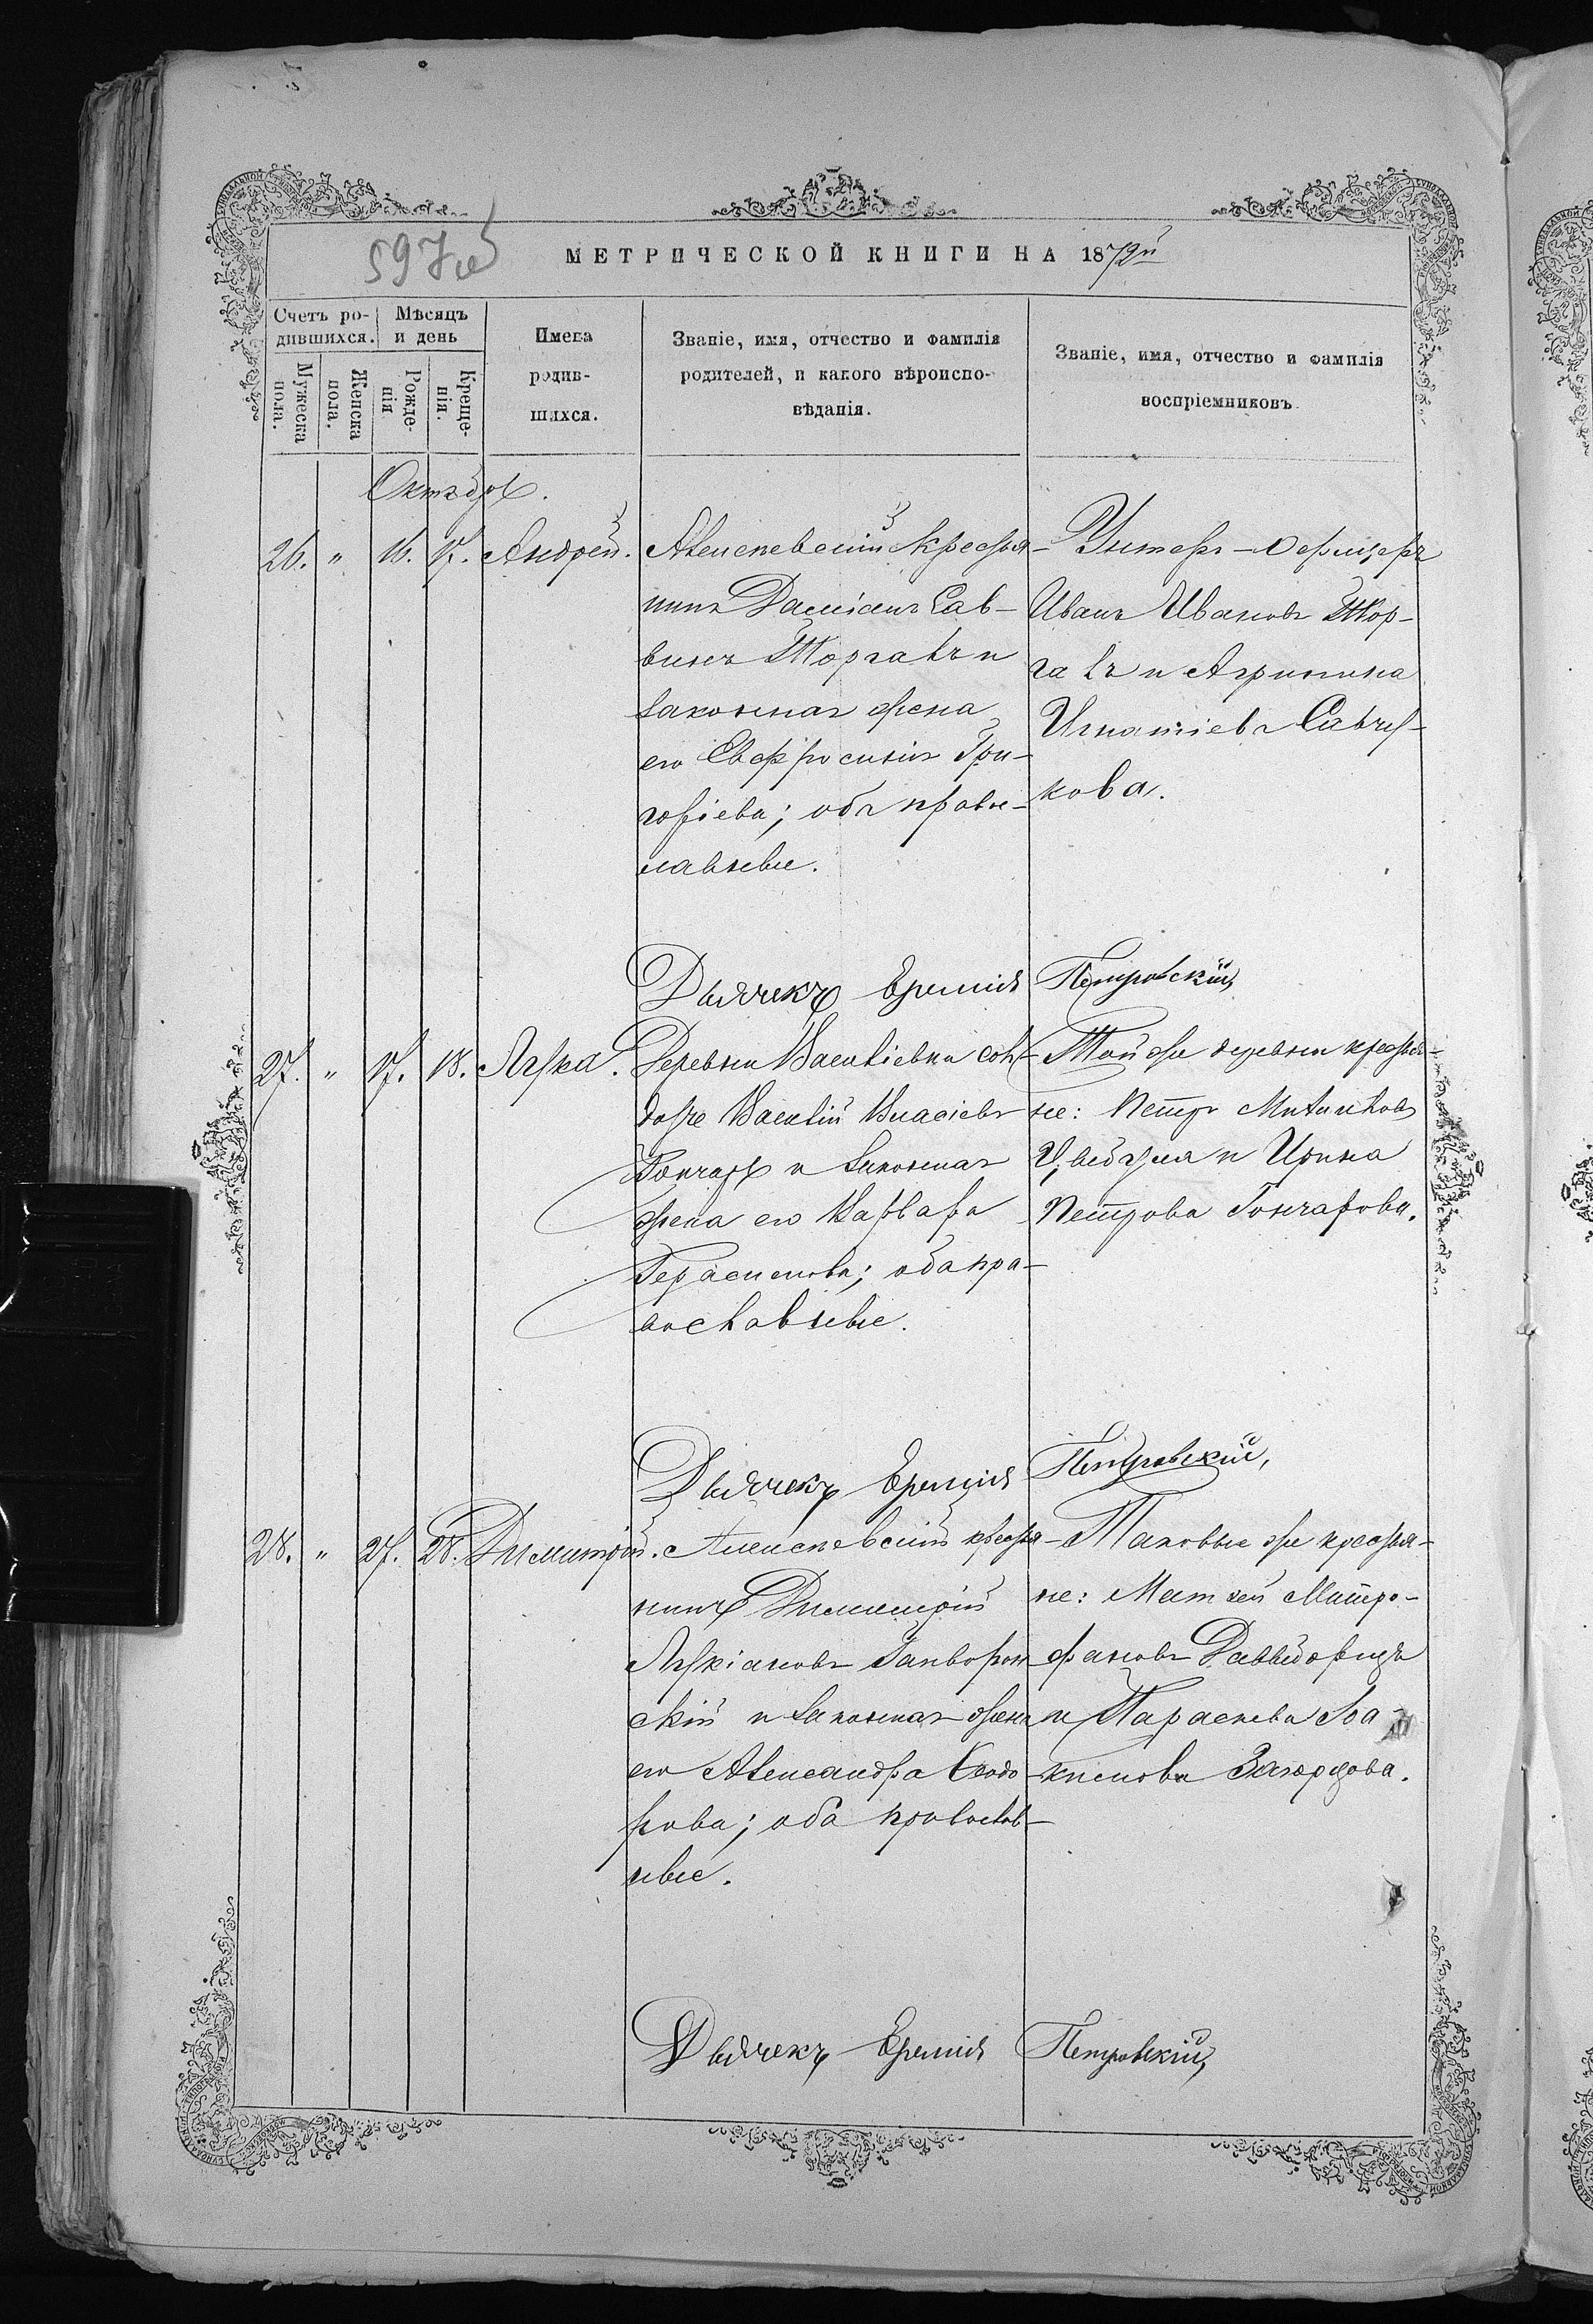 597
МЕТРИЧЕСКОЙ КНИГИ НА 1872й
Счетъ ро-
дившихся.
Мѣсяцъ
и день
Мужеска
пола.
Женска
пола.
Рожде-
нія
Креще-
нія.
Имена
родив-
шихся.
Званіе, имя, отчество и фамилія
родителей, и какого вѣроиспо-
вѣданія.
Званіе, имя, отчество и фамилія
воспріемниковъ
Октябрь.
26. " 16. 17. Андрей.
Алексевскій Крестья-
нинъ Даміанъ Сав-
винъ Шоргалъ и
законная жена
его Евфросинія Гри-
горіева; оба право-
лавные.
Унтеръ-Офицеръ
Иванъ Ивановъ Шор-
галъ и Агрипина
Игнатіева
кова.
Дьячекъ Еремія Петровскій
27. " 17. 18. Лука.
Деревни Васильевки сол-
дате Василій Власіевъ
Гончаръ и Законная
жена его Варвара
Герасимова; оба пра-
вославные.
Той же деревни крестья-
не: Петръ
и Ирина
Петрова Гончарова.
Дьячекъ Еремія Петровскій,
28. " 27. 28. Димитрій.
Алексевскій крестья-
нинъ Димитрій
Лукіановъ Заиворон
скій и Законная жена
его Александра Ѳеодо-
рова; оба православ-
ные.
Таковые же крестья-
не: Матѳей Митро-
фановъ Давидоричъ
и Параскева Іоа-
кимова
Дьячекъ Еремія Петровскій